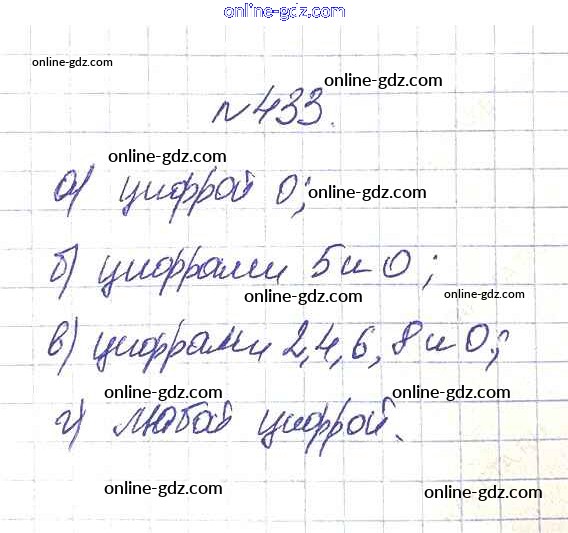 online-gdz.com
online-gdz.com
online-gdz.com
№433.
online-gdz.com
а) цифрой 0;
online-gdz.com
б) цифрами 5 и 0;
online-gdz.com
online-gdz.com
в) цифрами 2, 4, 6, 8 и 0;
online-gdz.com
online-gdz.com
г) любой цифрой.
online-gdz.com
online-gdz.com